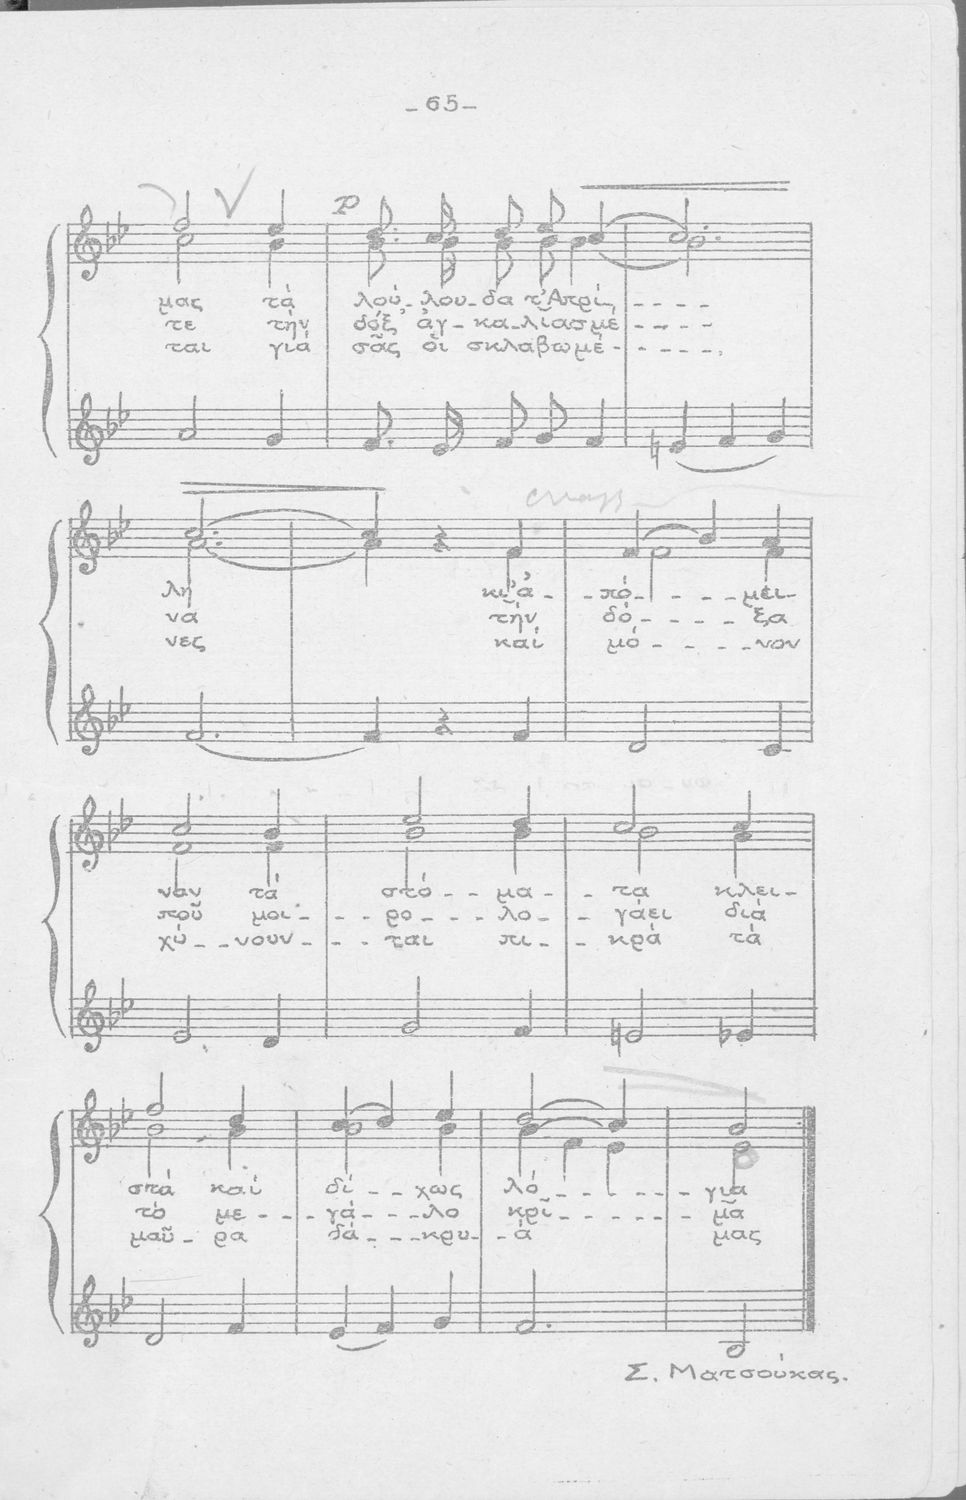 -65-
p
μας τά λού-λου-δα τ'Απρί-----
τε τήν δόξ' ἀγ-κα-λιασμέ----
ται γιά σᾶς οἱ σκλαβωμέ-----
λη κι'ἀ--πό-----μει-
νά τήν δό-----ξα
νες καί μό-----νον
ναν τά στό--μα--τα κλει-
ποῦ μοι---ρο---λο--γάει διά
χύ--νουν---ται πι--κρά τά
στά καί δί--χως λό-----για
τό με---γά---λο κρῖ-----μα
μαῦ-ρα δά---κρυ-ά μας
Σ. Ματσούκας.